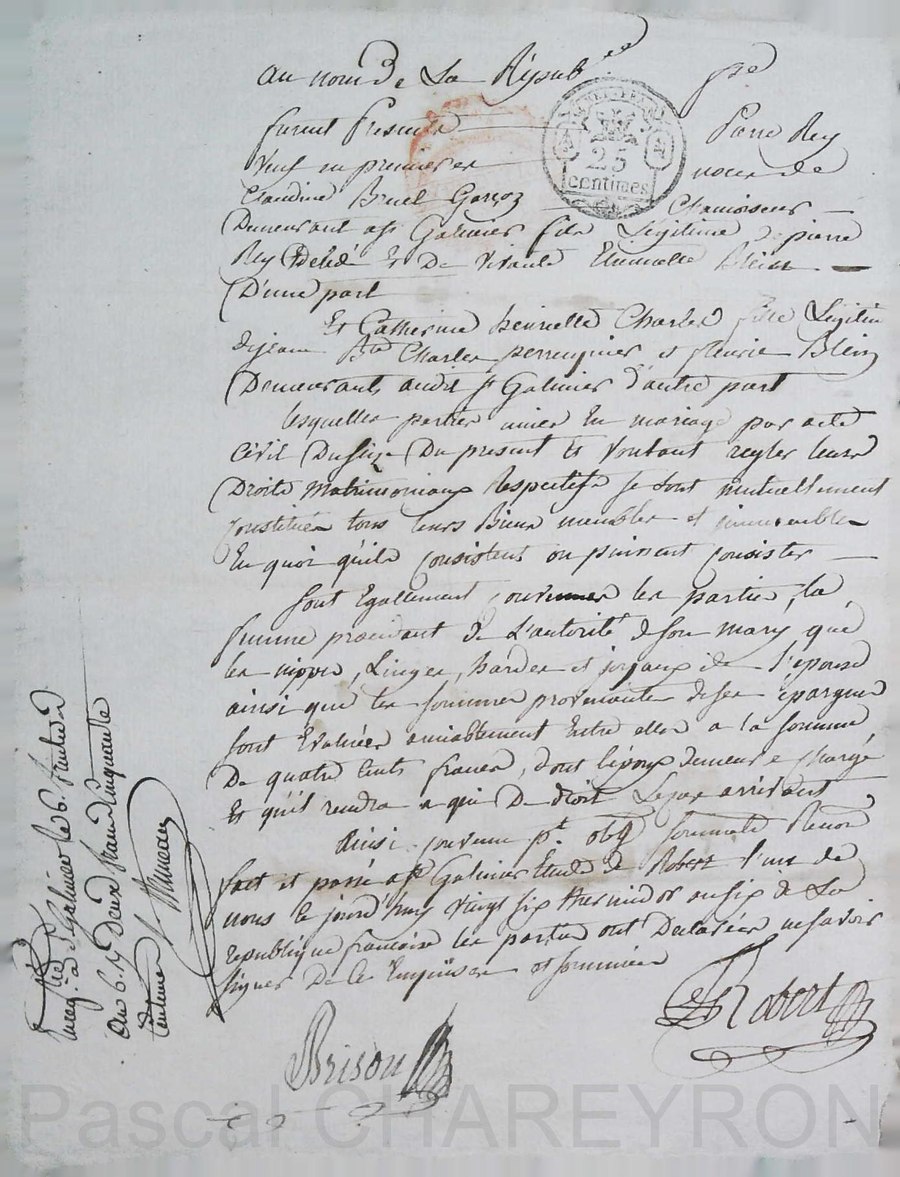 au nom de La Répub^ee f^se
furent Presents Pierre Rey
Veuf en premieres noces de
Claudine Bruel Garçoz Chamoiseur
Demeurant a s^t Galmier fils Légitime de pierre
Rey et De Elienette Blein
D'une part
Et Catherine henriette Charles fille Légitim
de jean B^te Charles perruquier et fleurie Blein
Demeurants audit s^t Galmier d'autre part
lesquelles parties unies En mariage par acte
Civil Du seize Du present Et Voulant regler leurs
Droits Matrimoniaux Respectifs se sont mutuellement
Constitués tous leurs Biens meubles et immeubles
En quoi qu'ils Consistent ou puissent Consister
Sont Egallement Convenues les parties, la
femme procedant de L'autorité de son mary, que
les nippes, Linges, hardes et joyaux de l'epouse
ainsi que les sommes provenantes de ses Epargnes
sont Evaluées amiablement Entre elles a la somme
De quatre Cents francs, dont l'époux demeure Chargé
Et qu'il rendra a qui De droit Le cas arrivant
Ainsi Convenu p^t. obg
fait et passé a s^t Galmier Etude de Robert l'un de
nous le jourd'huy Vingt six thermidor an six de La
republique francaise les parties ont Declarées ne savoir
signer De Ce Enquises et sommées
Robert
Brison
Enreg. a s^t Galmier le 26
an 6. R Deux francs Cinquante
Centimes
25
centimes
Pascal CHAREYRON